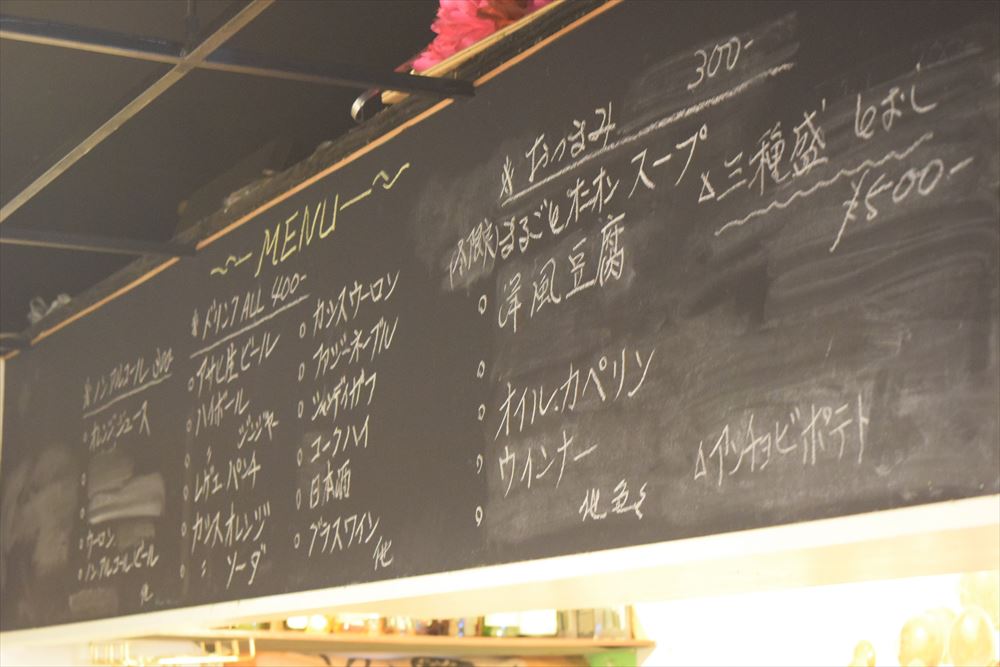 ~MENU~
※ノンアルコール 300
○オレンジジュース
○
○
○ウーロン
○ノンアルコールビール
他
※ドリンクALL 400-
○アサヒ生ビール
○ハイボール
○〃 ジンジャー
○レゲエパンチ
○カシスオレンジ
○〃 ソーダ
○カシスウーロン
○ファジーネーブル
○シャンディガフ
○コークハイ
○日本酒
○グラスワイン
他
※おつまみ 300-
まるごとオニオンスープ
○洋風豆腐
○
○オイル・カペリン
○ウィンナー
○ 他色々
△三種盛 とおし
¥500-
△アンチョビポテト